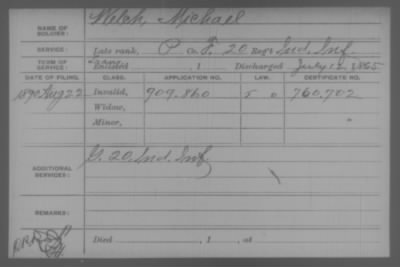 NAME OF SOLDIER: Welch, Michael
SERVICE: Late rank, P Co F, 20 Reg't Ind. Inf.
TERM OF SERVICE: Enlisted , 1 Discharged July 12, 1865
DATE OF FILING. CLASS. APPLICATION NO. LAW. CERTIFICATE NO.
1890 Aug 22 Invalid, 909.860 760.702
Widow,
Minor,
ADDITIONAL SERVICES: G. 20. Ind. Inf.
REMARKS:
Died , 1 , at